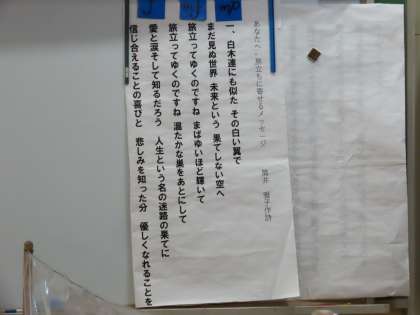 あなたへ-旅立ちに寄せるメッセージ
筒井 雅子作詩
一、白木連にも似た その白い翼で
まだ見ぬ世界 未来という 果てしない空へ
旅立ってゆくのですね まばゆいほど輝いて
旅立ってゆくのですね 温たかな巣をあとにして
愛と涙そして知るだろう 人生という名の迷路の果てに
信じ合えることの喜びと 悲しみを知った分 優しくなれることを
mp
mf
f